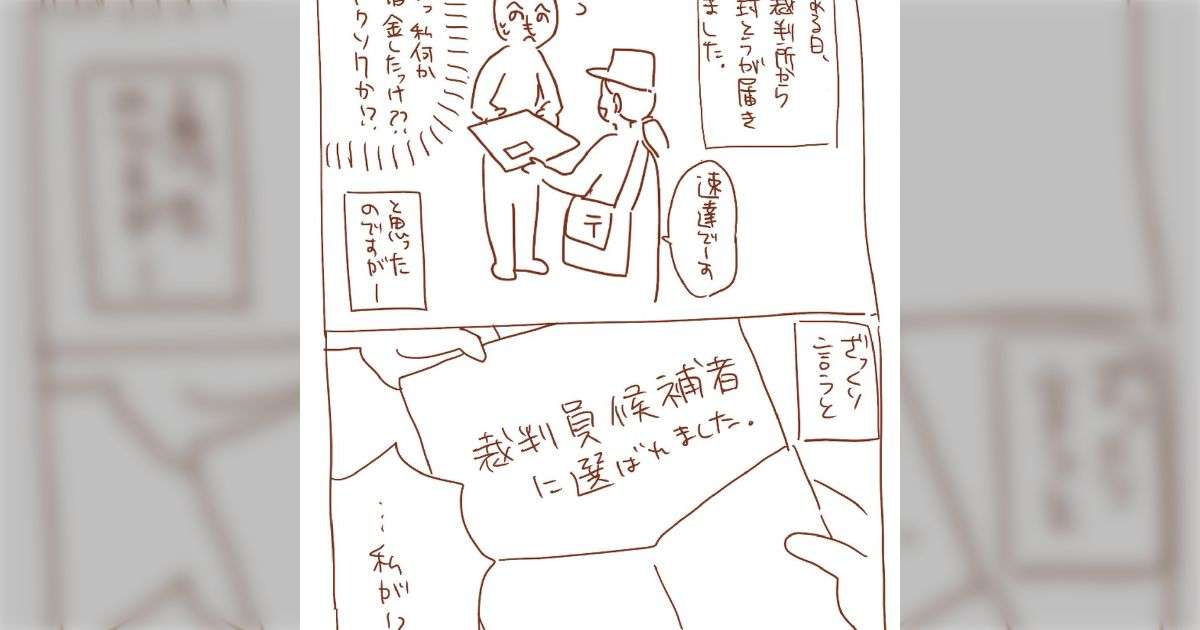 ある日、
裁判所から
封とうが届き
ました。
私何か
金したっけ??
と思った
のですがー
速達でーす
〒
ざっくり
言うと
裁判員候補者
に選ばれました。
…私が!?